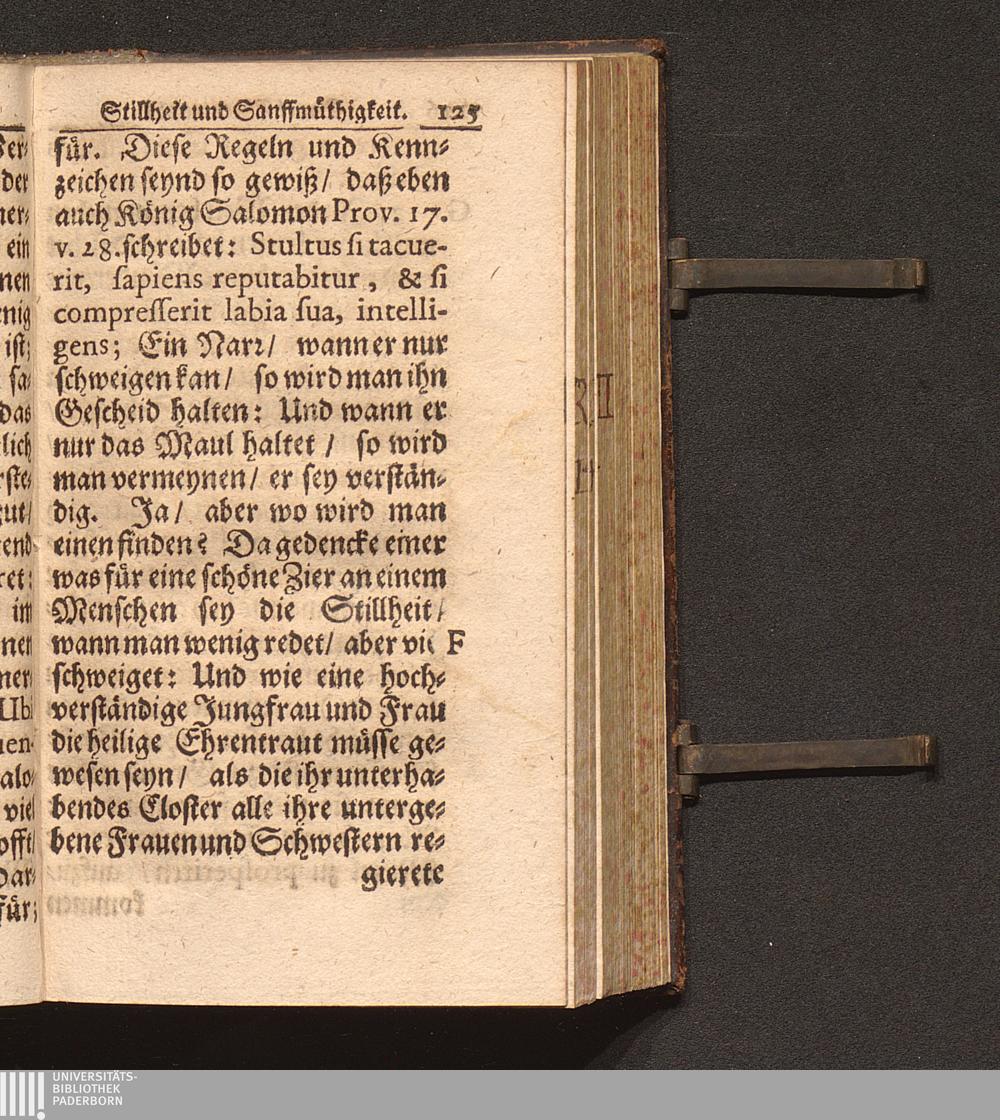 Stillheit und Sanffmüthigkeit. 125
für. Diese Regeln und Kenn-
zeichen seynd so gewiß/ daß eben
auch König Salomon Prov. 17.
v. 28. schreibet: Stultus si tacue-
rit, sapiens reputabitur, & si
compresserit labia sua, intelli-
gens; Ein Narr/ wann er nur
schweigen kan/ so wird man ihn
Gescheid halten: Und wann er
nur das Maul haltet/ so wird
man vermeynen/ er sey verstän-
dig. Ja/ aber wo wird man
einen finden? Da gedencke einer
was für eine schöne Zier an einem
Menschen sey die Stillheit/
wann man wenig redet/ aber vie F
schweiget: Und wie eine hoch-
verständige Jungfrau und Frau
die heilige Ehrentraut müsse ge-
wesen seyn/ als die ihr unterha-
bendes Closter alle ihre unterge-
bene Frauen und Schwestern re-
gierete
UNIVERSITÄTS-
BIBLIOTHEK
PADERBORN